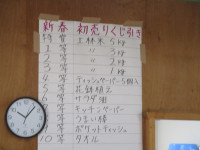 新春 初売りくじ引き
特等 上林米 5kg
1等 〃 3kg
2等 〃 2kg
3等 〃 1kg
4等 ティッシュペーパー5個入
5等 花鉢植え
6等 サラダ油
7等 キッチンペーパー
8等 うまい棒
9等 ポケットティッシュ
10等 タオル